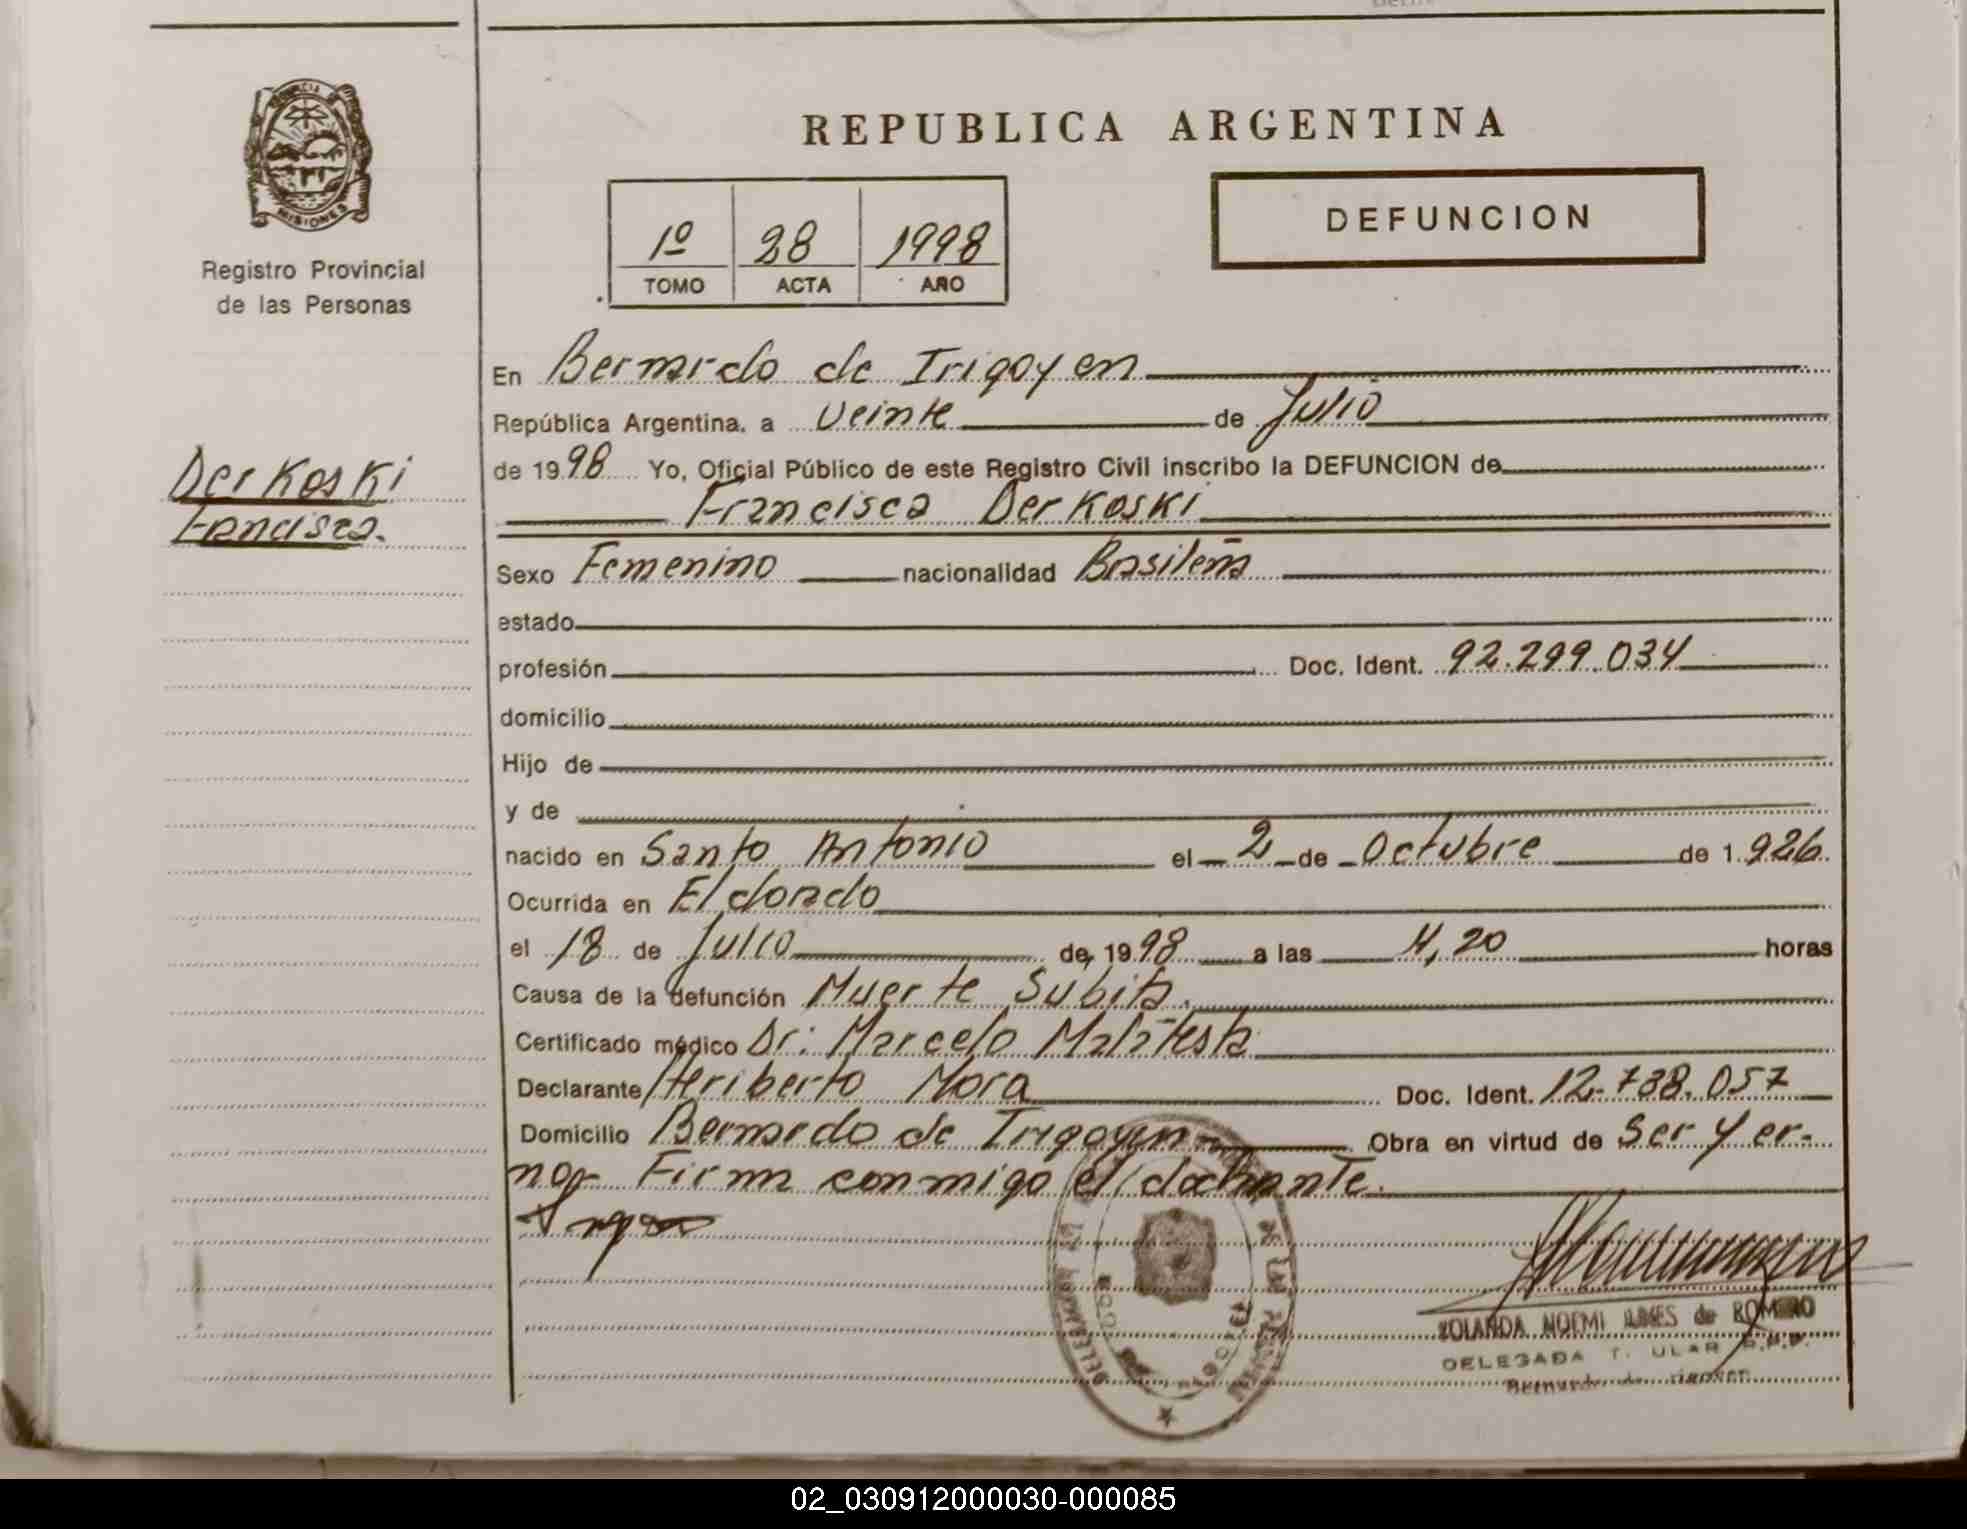 REPUBLICA ARGENTINA
DEFUNCION
MISIONES
Registro Provincial
de las Personas
1º 28 1998
TOMO ACTA AÑO
En Bernardo de Irigoyen
República Argentina, a Veinte de Julio
de 1998 Yo, Oficial Público de este Registro Civil inscribo la DEFUNCION de
Derkoski
Francisca Derkoski
Fancisca.
Sexo Femenino nacionalidad Brasileña
estado
profesión Doc. Ident. 92.299.034
domicilio
Hijo de
y de
nacido en Santo Antonio el 2 de Octubre de 1.926.
Ocurrida en Eldorado
el 18 de Julio de 1998 a las 4,20 horas
Causa de la defunción Muerte Subita.
Certificado médico Dr: Marcelo Malatesta
Declarante Heriberto Mora Doc. Ident. 12.738.057
Domicilio Bernardo de Irigoyen Obra en virtud de Ser yer-
no Firma conmigo el
YOLANDA NOEMI de ROMERO
DELEGADA R.P.P.
Bernardo de Irigoyen
02_030912000030-000085